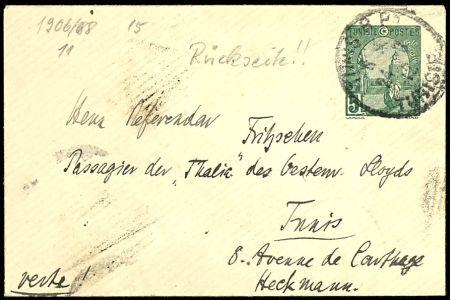 1906/08 15
11
Rückseite!!
TUNISIE POSTES
5
TUNIS
Herrn Referendar
Fritzschen
Passagier der "Thalia" des Oesterr. Lloyds
Tunis
8. Avenue de Carthage
Heckmann.
verte!